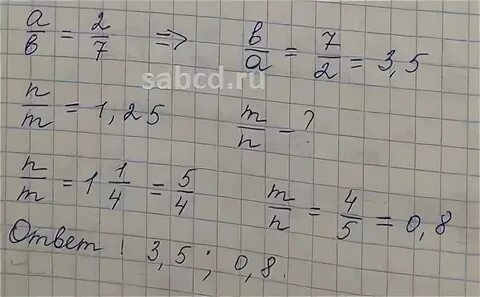 a/в = 2/7 ⇒ в/a = 7/2 = 3,5
sabcd.ru
n/m = 1,25 m/n - ?
n/m = 1 1/4 = 5/4 m/n = 4/5 = 0,8
Ответ: 3,5; 0,8.